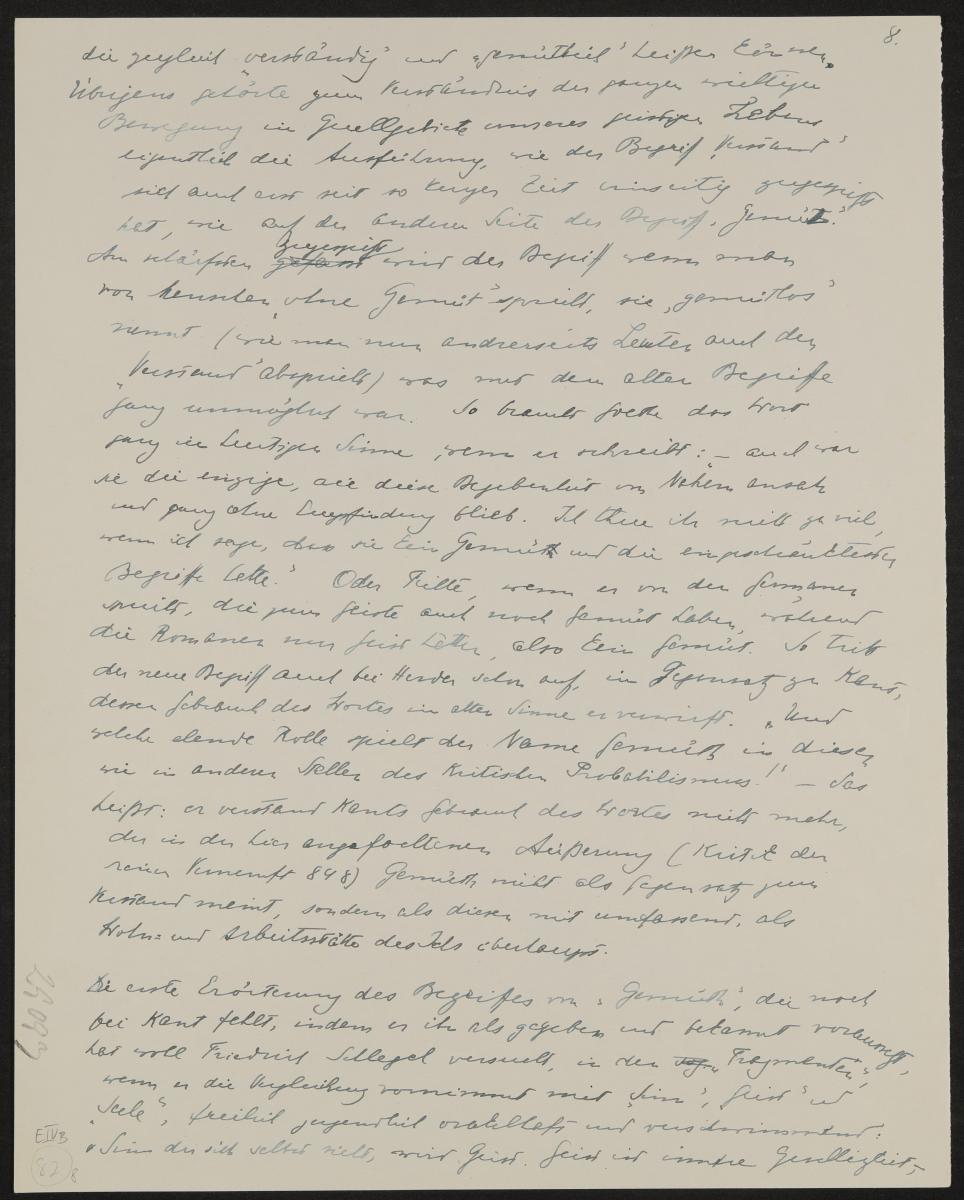 8.
die zugleich „verständig“ und „gemüthlich“ heißen können.
Übrigens gehörte zum Verständnis der ganzen wichtigen
Bewegung im Quellgebiete unseres geistigen Lebens
eigentlich die Ausführung, wie der Begriff „Verstand“
sich auch erst seit so kurzer Zeit einseitig zugespitzt
hat, wie auf der anderen Seite der Begriff „Gemüt“.
Am schärfsten zugespitzt wird der Begriff wenn man
von Menschen „ohne Gemüt“ spricht, sie „gemütlos“
nennt (wie man nun andrerseits Leuten auch den
„Verstand“ abspricht) was mit dem alten Begriffe
ganz unmöglich war. So braucht Goethe das Wort
ganz im heutigen Sinne, wenn er schreibt: – auch war
sie die einzige, die diese Begebenheit von Nahem ansah
und ganz ohne Empfindung blieb. Ich thue ihr nicht zu viel,
wenn ich sage, dass sie kein Gemüth und die eingeschränktesten
Begriffe hatte.“ Oder Fichte, wenn er von den Germanen
spricht, die zum Geiste auch noch Gemüt haben, während
die Romanen nur Geist hätten, also kein Gemüt. So tritt
der neue Begriff auch bei Herder schon auf, im Gegensatz zu Kant,
dessen Gebrauch des Wortes im alten Sinne er verwirft. „Und
welche elende Rolle spielt der Name Gemüth in diesen
wie in anderen Stellen des Kritischen Probabilismus!“ – Das
heißt: er verstand Kants Gebrauch des Wortes nicht mehr,
der in der hier angefochtenen Äußerung (Kritik der
reinen Vernunft 848) Gemüth nicht als Gegensatz zum
Verstand meint, sondern als diesen mit umfassend, als
Wohn- und Arbeitsstätte des Ichs überhaupt.
Die erste Erörterung des Begriffes von „Gemüth“, die noch
bei Kant fehlt, indem er ihn als gegeben und bekannt voraussetzt,
hat wohl Friedrich Schlegel versucht, in den Fragmenten,
wenn er die Vergleichung vornimmt mit „Sinn“, „Geist“ und
„Seele“, freilich jugendlich orakelhaft und verschwimmend:
„Sinn der sich selbst sieht, wird Geist. Geist ist innere Geselligkeit,
EIVB
82
8